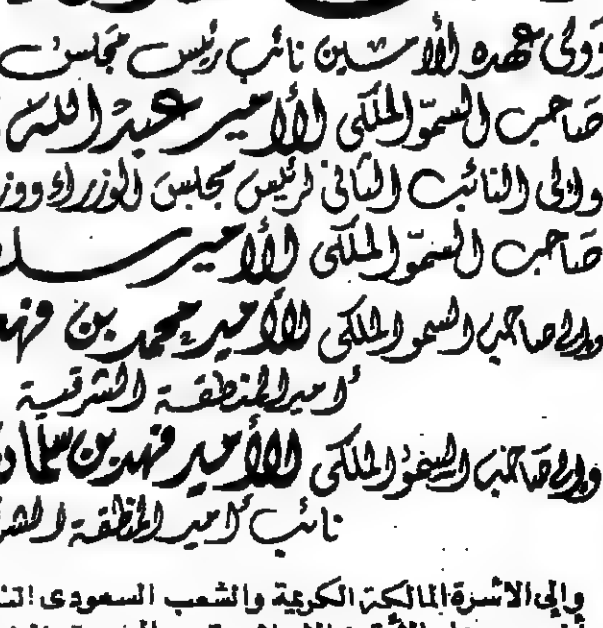 وولى عهده الأمين نائب رئيس مجلس
صاحب السمو الملكى الأمير عبد الله
وإلى النائب الثانى لرئيس مجلس الوزراء ووز
صاحب السمو الملكى الأمير سلـ
وإلى صاحب السمو الملكى الأمير محمد بن فهد
أمير المنطقة الشرقية
وإلى صاحب السمو الملكى الأمير فهد بن سلمان
نائب أمير المنطقة الشر
وإلى الاسرة المالكة الكريمة والشعب السعودى